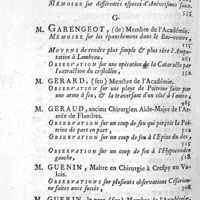 MÉMOIRE sur différentes especes d'Anévrismes faux.
535
G.
M. GARENGEOT, (de) Membre de l'Académie.
MÉMOIRE sur les épanchemens dans le Bas-ventre,
115
MOYENS de rendre plus simple & plus sûre l'Amputation
à Lambeau,
261
OBSERVATION sur une opération de la Cataracte par
l'extraction du crystallin,
352
M. GERARD, (feu) Membre de l'Académie.
OBSERVATION sur une playe de Poitrine faite par
une arme à feu, & à travers d'un côté à l'autre,
485
M. GERAUD, ancien Chirurgien Aide-Major de l'Armée
de Flandres.
OBSERVATION sur un coup de feu qui perçoit la Poitrine
de part en part,
518
OBSERVATION sur un coup de feu à l'Epine du dos,
OBSERVATION sur un coup de feu à l'Hypocondre
gauche,
518
M. GUENIN, Maître en Chirurgie à Crespy en Valois.
OBSERVATIONS sur plusieurs observations Césariennes
faites avec succès,
308
M. GUERIN, le pere (feu) Membre de l'Académie.